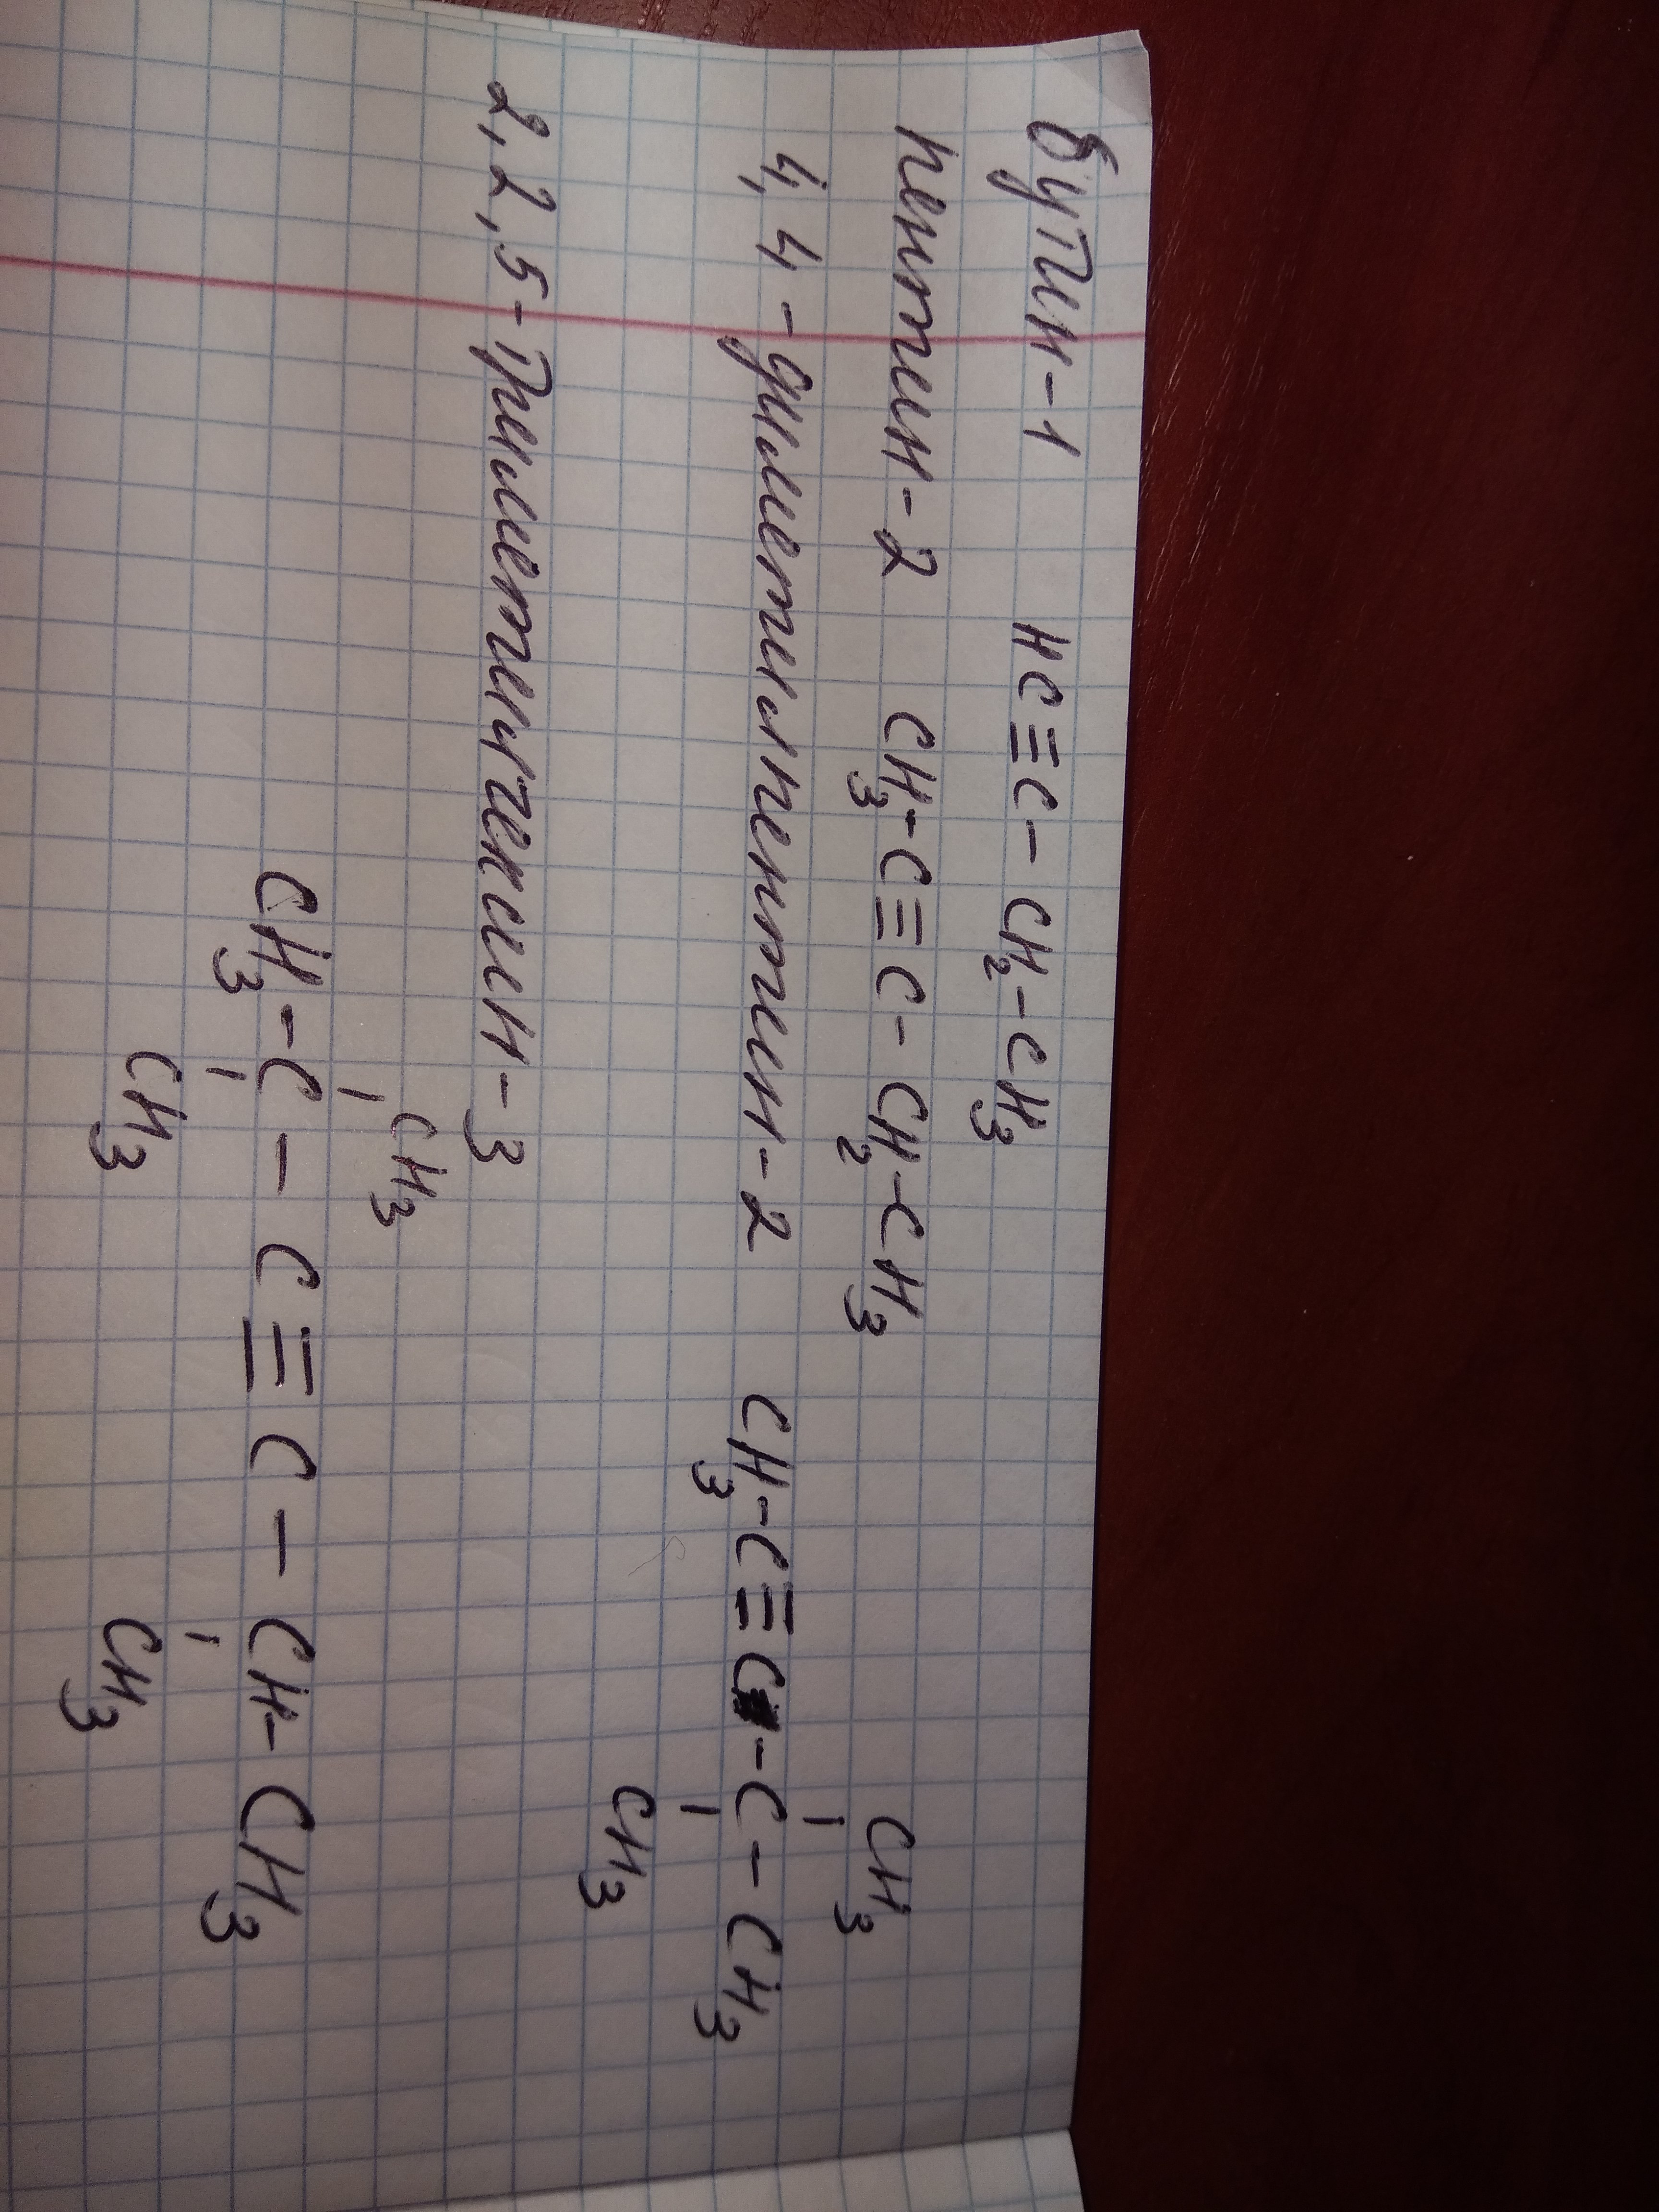 бутин-1 HC≡C-CH₂-CH₃
пентин-2 CH₃-C≡C-CH₂-CH₃
CH₃
4,4-диметилпентин-2 CH₃-C≡C-C-CH₃
CH₃
2,2,5-триметилгексин-3
CH₃
CH₃-C-C≡C-CH-CH₃
CH₃ CH₃